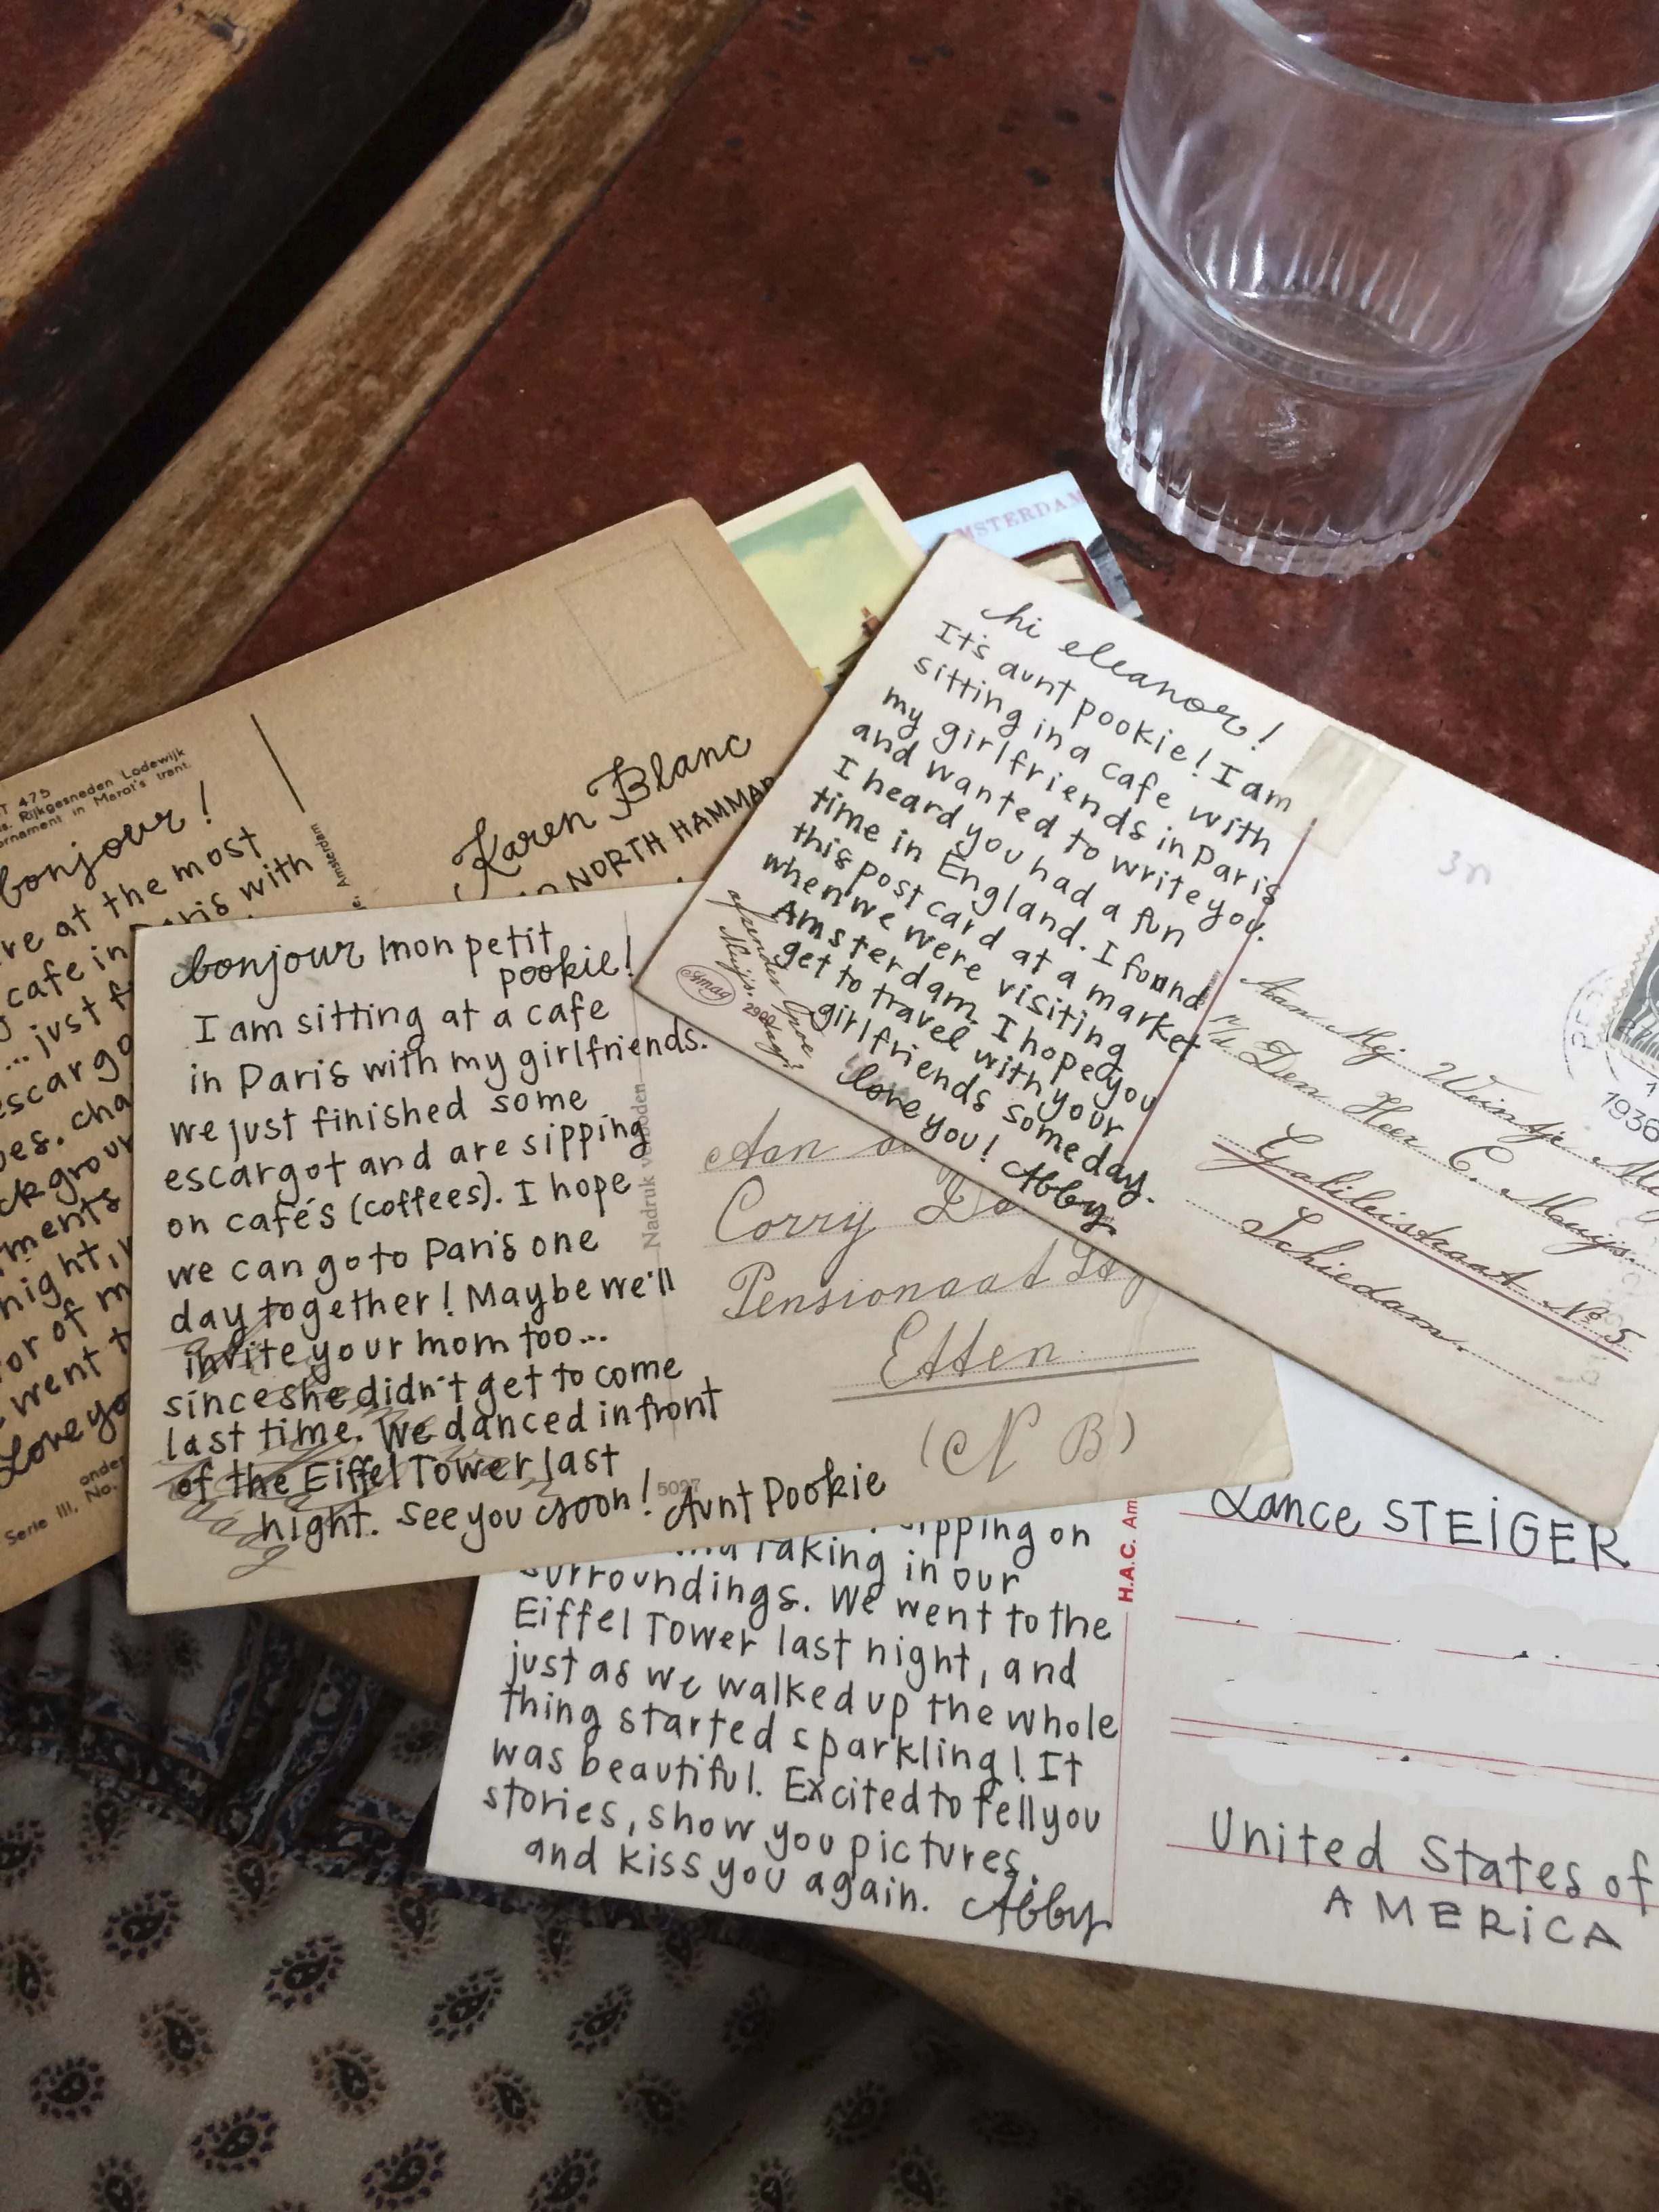 T 475
Rijkgesneden Lodewijk
ornament in Marot's trant.
bonjour!
at the most
cafe in Paris with
... just
Amsterdam
Karen Blanc
NORTH HAMMAR
night,
or of
went
Love yo
Serie III, No.
bonjour mon petit
pookie!
I am sitting at a cafe
in Paris with my girlfriends.
we just finished some
escargot and are sipping
on cafés (coffees). I hope
we can go to Paris one
day together! Maybe we'll
invite your mom too...
since she didn't get to come
last time. We danced in front
of the Eiffel Tower last
night. see you soon! Aunt Pookie
Nadruk verboden
5027
Aan
Corry
Pensionaat
Etten
(N B)
AMSTERDAM
hi eleanor!
It's aunt pookie! I am
sitting in a cafe with
my girlfriends in Paris
and wanted to write you.
I heard you had a fun
time in England. I found
this post card at a market
when we were visiting
Amsterdam. I hope you
get to travel with your
girlfriends someday.
love you! Abby
Amag
3n
Aan Mej
Den Heer C. Muijs.
Galileistraat No 5
Schiedam.
1936
sipping on
and taking in our
surroundings. We went to the
Eiffel Tower last night, and
just as we walked up the whole
thing started sparkling! It
was beautiful. Excited to tell you
stories, show you pictures,
and kiss you again. Abby
H.A.C. Am
Lance STEIGER
United States of
AMERICA